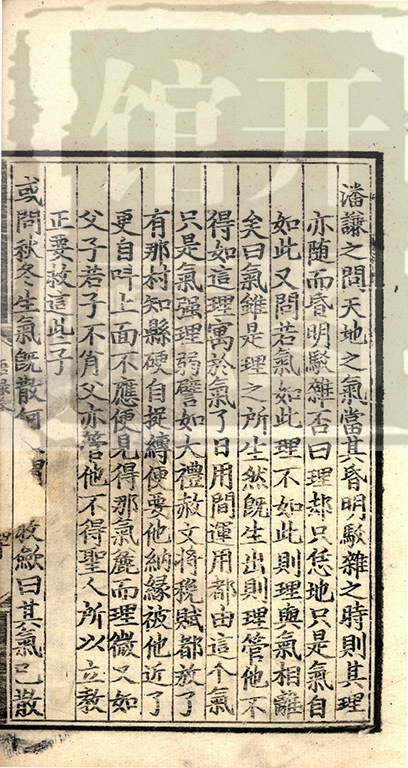 潘謙之問天地之氣當其昏明駁雜之時則其理
亦隨而昏明駁雜否曰理却只恁地只是氣自
如此又問若氣如此理不如此則理與氣相離
矣曰氣雖是理之所生然旣生出則理管他不
得如這理寓於氣了日用間運用都由這个氣
只是氣强理弱譬如大禮赦文將稅賦都放了
有那村知縣硬自捉縛便要他納緣被他近了
更自呌上面不應便見得那氣麄而理微又如
父子若子不肖父亦管他不得聖人所以立教
正要救這些子
或問秋冬生氣旣散何 收斂曰其氣已散
开
馆